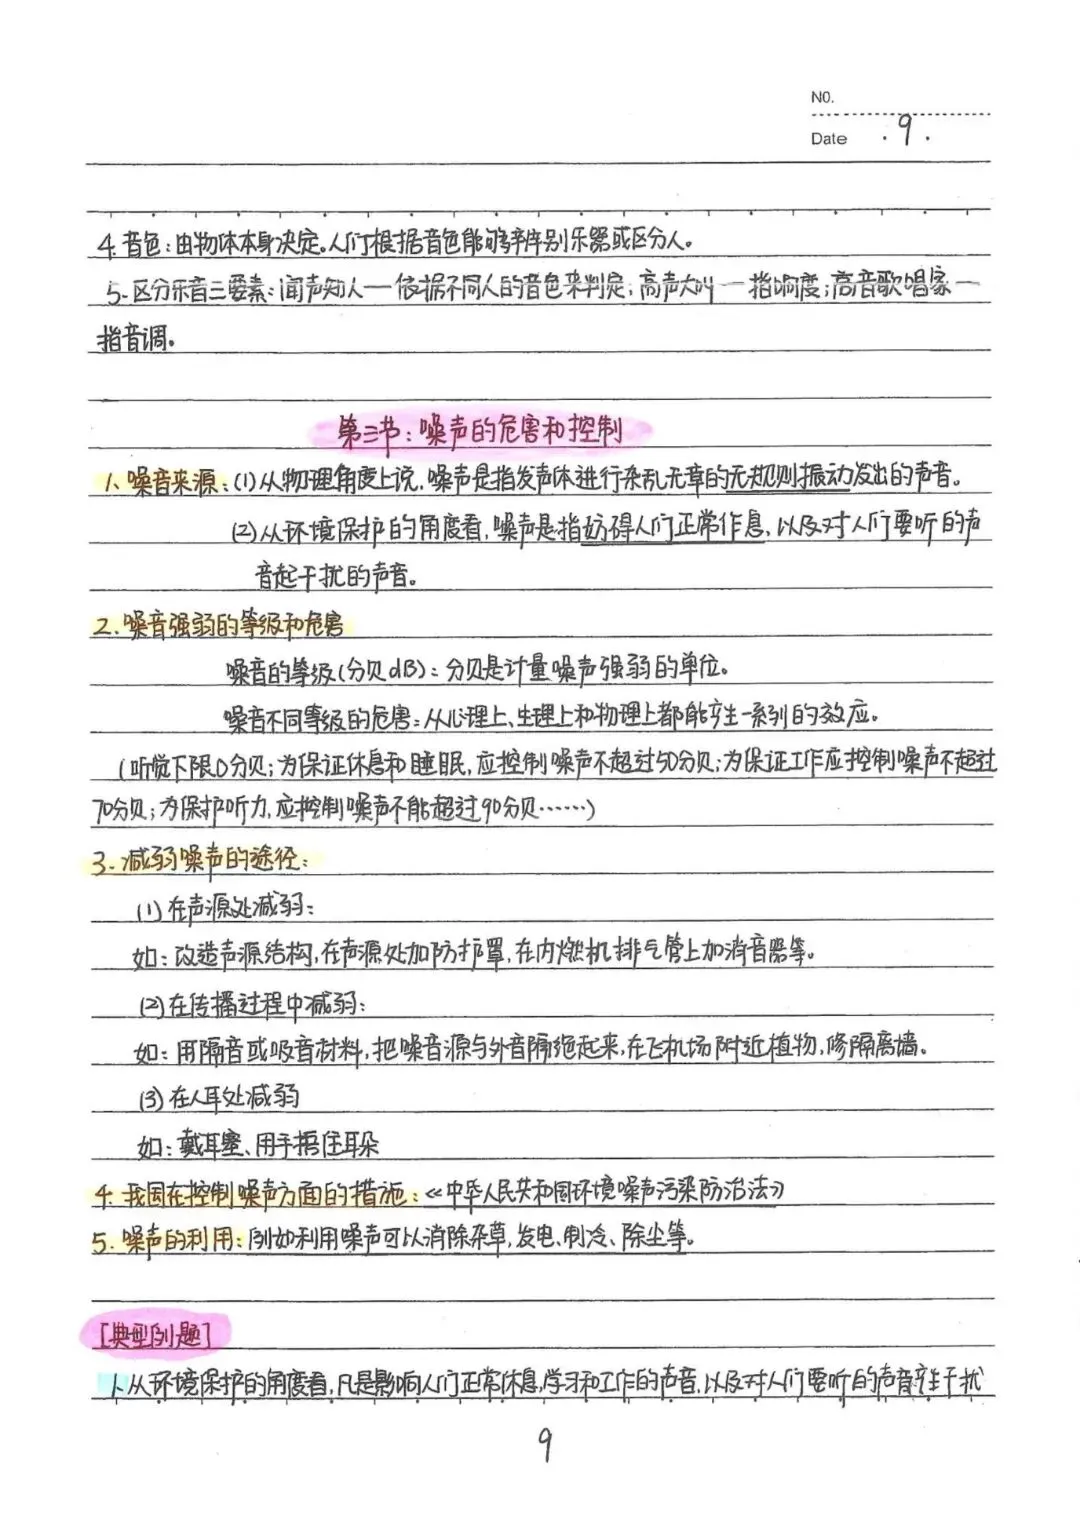 NO.
Date ·9·
4.音色:由物体本身决定。人们根据音色能够辨别乐器或区分人。
5.区分乐音三要素:闻声知人—依据不同人的音色来判定;高声大叫—指响度;高音歌唱家—
指音调。
第三节:噪声的危害和控制
1、噪音来源:(1)从物理角度上说,噪声是指发声体进行杂乱无章的无规则振动发出的声音。
(2)从环境保护的角度看,噪声是指妨碍人们正常作息,以及对人们要听的声
音起干扰的声音。
2.噪音强弱的等级和危害
噪音的等级(分贝dB):分贝是计量噪声强弱的单位。
噪音不同等级的危害:从心理上、生理上和物理上都能产生一系列的效应。
(听觉下限0分贝;为保证休息和睡眠,应控制噪声不超过50分贝;为保证工作应控制噪声不超过
70分贝;为保护听力,应控制噪声不能超过90分贝……)
3.减弱噪声的途径:
(1)在声源处减弱:
如:改造声源结构,在声源处加防护罩,在内燃机排气管上加消音器等。
(2)在传播过程中减弱:
如:用隔音或吸音材料,把噪音源与外音隔绝起来,在飞机场附近植物,修隔离墙。
(3)在人耳处减弱
如:戴耳塞、用手捂住耳朵
4.我国在控制噪声方面的措施:《中华人民共和国环境噪声污染防治法》
5.噪声的利用:例如利用噪声可以消除杂草,发电、制冷、除尘等。
[典型例题]
1、从环境保护的角度看,凡是影响人们正常休息,学习和工作的声音,以及对人们要听的声音产生干扰
9